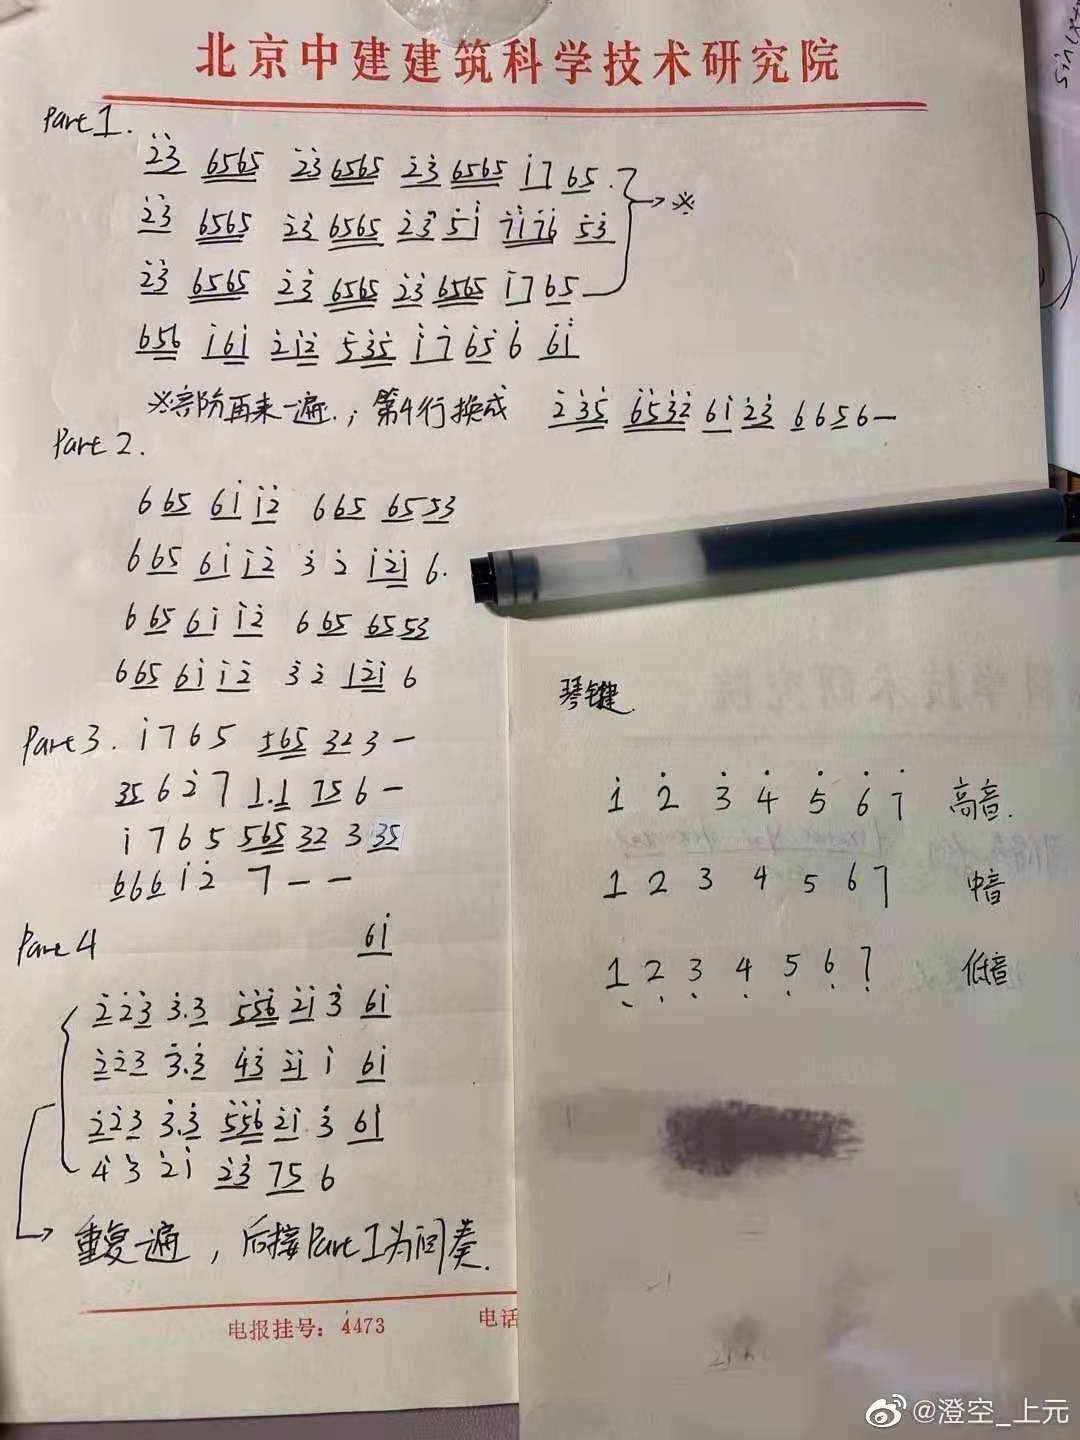 北京中建建筑科学技术研究院
Part 1.
2̇3̇ 6565 2̇3̇ 6565 2̇3̇ 6565 1̇7 65. → ※
2̇3̇ 6565 2̇3̇ 6565 2̇3̇ 5̇1̇ 7̇1̇7̇6̇ 5̇3̇
2̇3̇ 6565 2̇3̇ 6565 2̇3̇ 6565 1̇7 65
656 1̇61̇ 2̇1̇2̇ 5̇3̇5̇ 1̇7 65 6 61̇
※部防再来一遍.；第4行换成 2̇3̇5̇ 6̇5̇3̇2̇ 61̇ 2̇3̇ 6 6 5 6 —
Part 2.
6 65 61̇ 1̇2̇ 6 65 65 53
6 65 61̇ 1̇2̇ 3̇ 2̇ 1̇2̇1̇ 6.
6 65 61̇ 1̇2̇ 6 65 65 53
6 65 61̇ 1̇2̇ 3̇ 2̇ 12̇1̇ 6
Part 3. 1̇ 7 6 5 565 32 3 —
35 6 2̇ 7 1.1 75 6 —
1 7 6 5 565 32 3 35
6 6 6 1̇ 2̇ 7 — —
Part 4 61̇
2̇ 2̇ 3̇ 3̇.3̇ 5̇5̇6̇ 2̇1̇ 3̇ 61̇
2̇ 2̇ 3 3̇.3̇ 4̇3̇ 2̇1̇ 1̇ 61̇
2̇ 2̇ 3̇ 3̇.3̇ 5̇5̇6̇ 2̇1̇ 3̇ 61̇
4̇ 3̇ 2̇1̇ 2̇3̇ 75 6
重复一遍，后接Part 1为间奏.
电报挂号：4473 电话
琴键
1̇ 2̇ 3̇ 4̇ 5̇ 6̇ 7̇ 高音.
1 2 3 4 5 6 7 中音
1̣ 2̣ 3̣ 4̣ 5̣ 6̣ 7̣ 低音
@澄空_上元